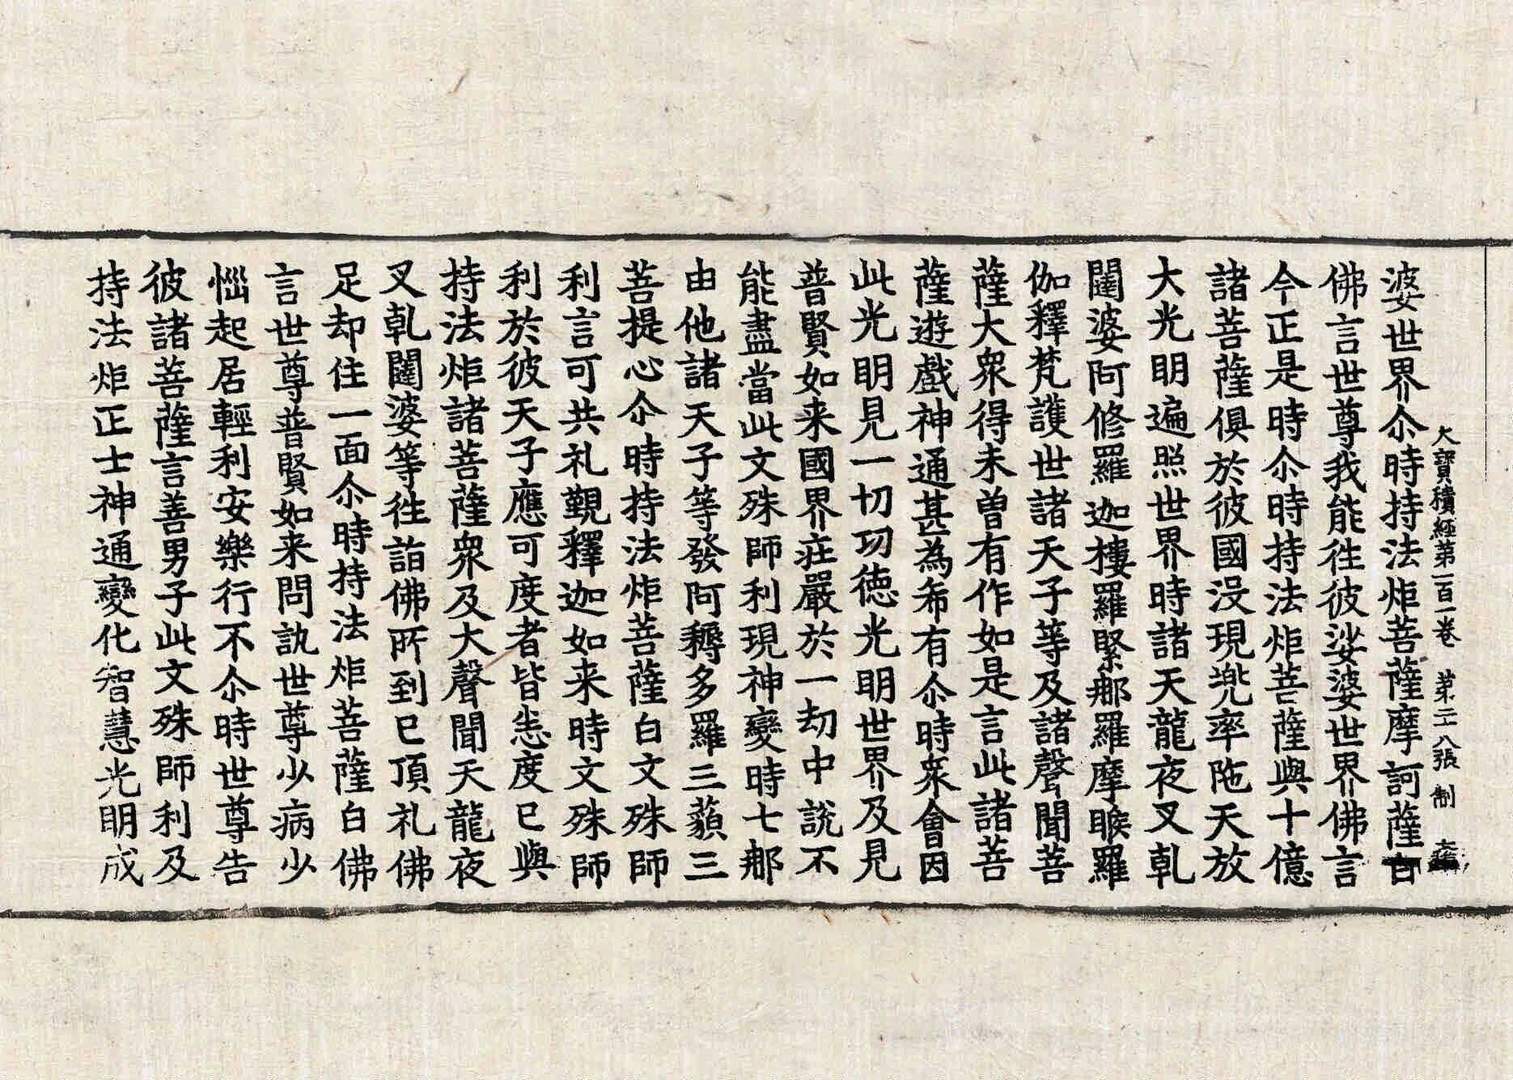 大寶積經第一百一卷　第二十八張　制
婆世界尒時持法炬菩薩摩訶薩白
佛言世尊我能往彼娑婆世界佛言
今正是時尒時持法炬菩薩與十億
諸菩薩俱於彼國没現兜率陁天放
大光明遍照世界時諸天龍夜叉乹
闥婆阿修羅迦樓羅緊那羅摩睺羅
伽釋梵護世諸天子等及諸聲聞菩
薩大衆得未曾有作如是言此諸菩
薩遊戲神通甚為希有尒時衆會因
此光明見一切功德光明世界及見
普賢如来國界莊嚴於一劫中說不
能盡當此文殊師利現神變時七那
由他諸天子等發阿耨多羅三藐三
菩提心尒時持法炬菩薩白文殊師
利言可共礼覲釋迦如来時文殊師
利於彼天子應可度者皆悉度已與
持法炬諸菩薩衆及大聲聞天龍夜
叉乹闥婆等往詣佛所到已頂礼佛
足却住一面尒時持法炬菩薩白佛
言世尊普賢如来問訊世尊少病少
惱起居輕利安樂行不尒時世尊告
彼諸菩薩言善男子此文殊師利及
持法炬正士神通變化智慧光明成